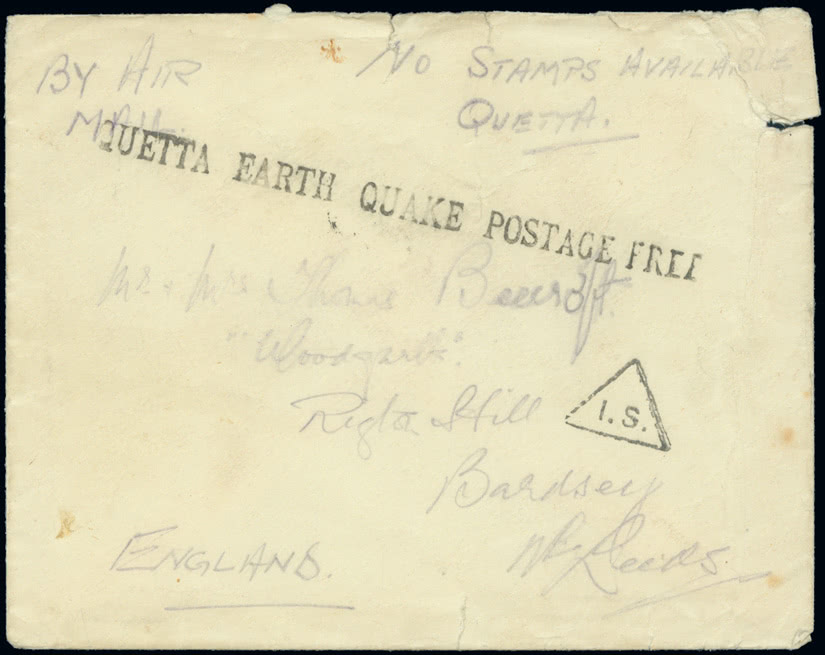 BY AIR
MAIL.
No STAMPS AVAILABLE
QUETTA.
QUETTA EARTH QUAKE POSTAGE FREE
Mr + Mrs Thomas Beecroft.
"Woodgarth".
Rigton Hill
I.S.
Bardsey
Nr Leeds.
ENGLAND.